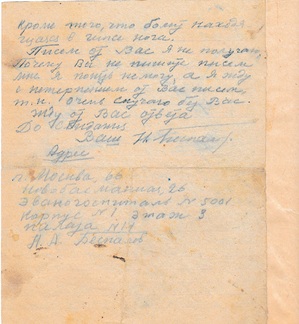 Кроме того, что болит нахо
в гипсе нога.
Писем от Вас я не получаю,
Почему Вы не пишете писем
мне я понять не могу, а я жду
с нетерпением от Вас писем,
т.к. очень скучаю без Вас.
Жду от Вас ответа
До Свидания
Ваш
Адрес
г. Москва 66
Новобасманная 26
Эвакогоспиталь № 5001
Корпус № 1 этаж 3
палата № 14
Н. А. Беспалов